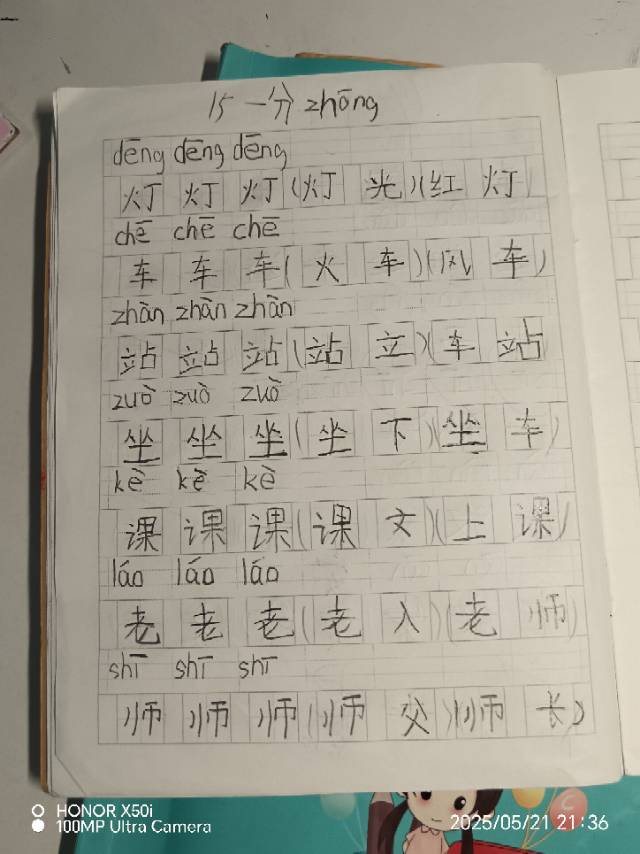 15 一分 zhōng
dēng dēng dēng
灯 灯 灯(灯 光)(红 灯)
chē chē chē
车 车 车(火 车)(风 车)
zhàn zhàn zhàn
站 站 站(站 立)(车 站)
zuò zuò zuò
坐 坐 坐(坐 下)(坐 车)
kè kè kè
课 课 课(课 文)(上 课)
láo láo láo
老 老 老(老 人)(老 师)
shī shī shī
师 师 师(师 父)(师 长)
HONOR X50i
100MP Ultra Camera
2025/05/21 21:36